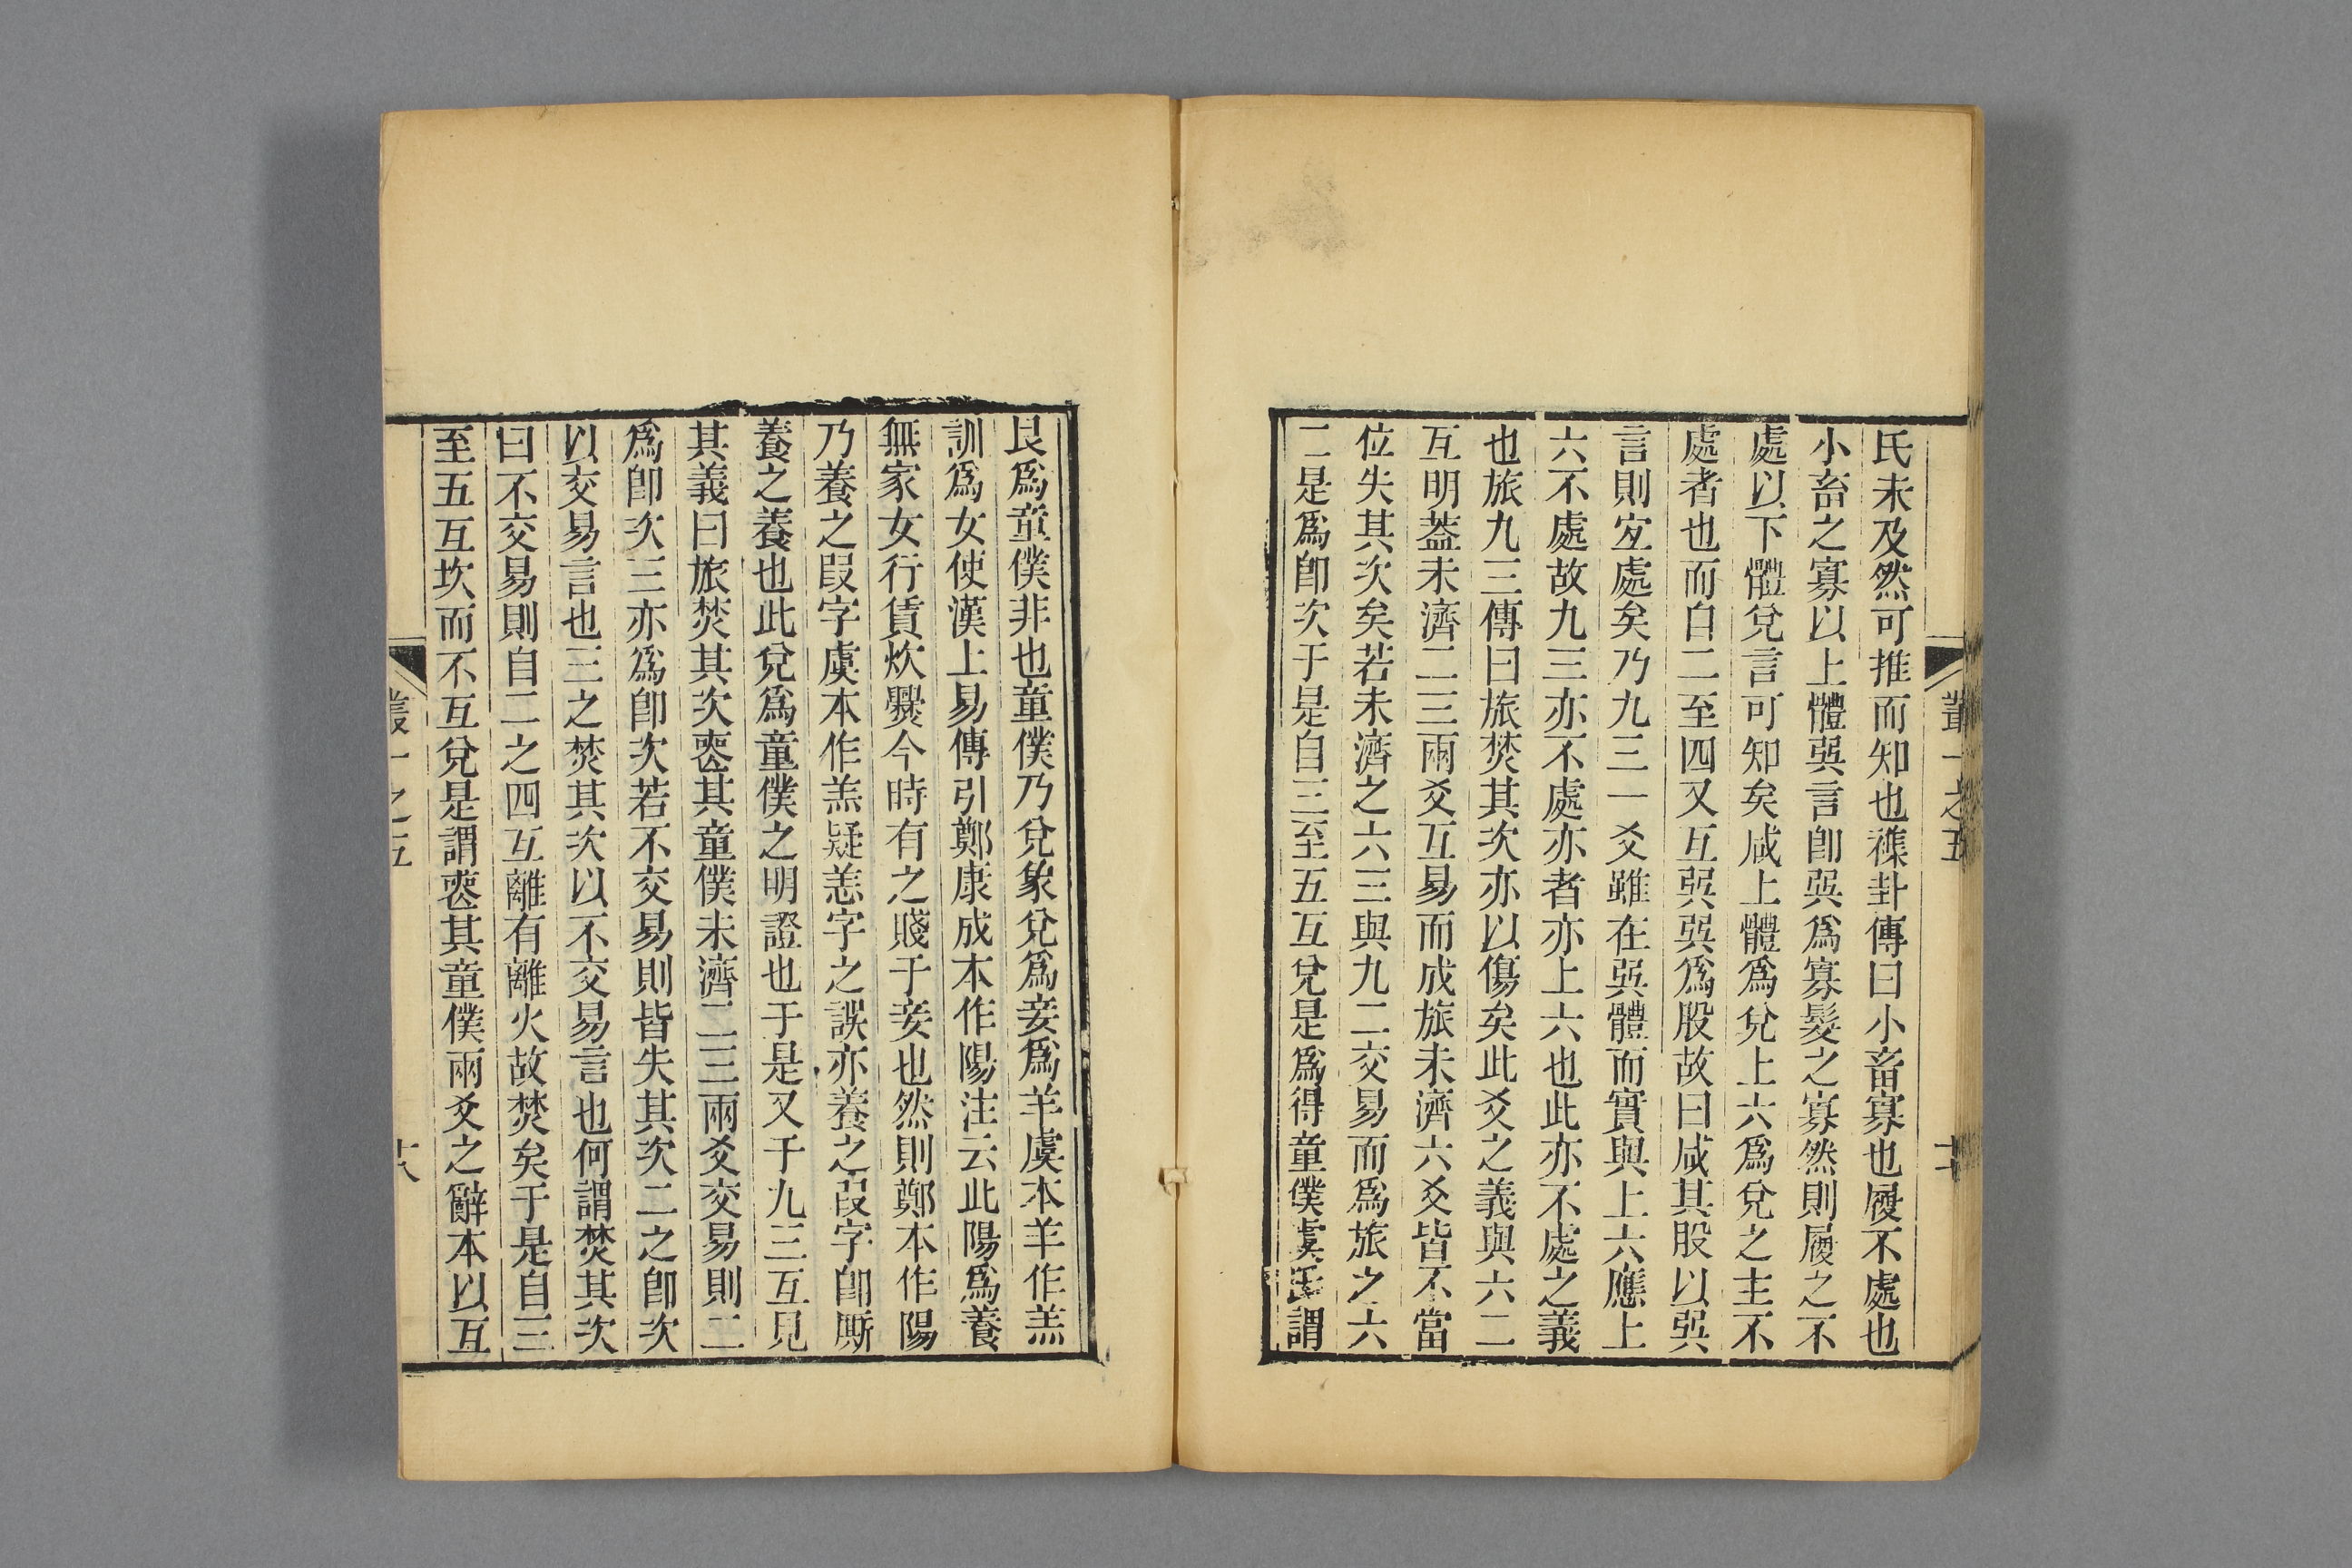 氏未及然可推而知也襍卦傳曰小畜寡也履不處也
小畜之寡以上體㢲言卽㢲爲寡髮之寡然則履之不
處以下體兌言可知矣咸上體爲兌上六爲兌之主不
處者也而自二至四又互㢲㢲爲股故曰咸其股以㢲
言則宐處矣乃九三一爻雖在㢲體而實與上六應上
六不處故九三亦不處亦者亦上六也此亦不處之義
也旅九三傳曰旅焚其次亦以傷矣此爻之義與六二
互明葢未濟二三兩爻互易而成旅未濟六爻皆不當
位失其次矣若未濟之六三與九二交易而爲旅之六
二是爲卽次于是自三至五互兌是爲得童僕虞氏謂
叢一之五
艮爲童僕非也童僕乃兌象兌爲妾爲羊虞本羊作羔
訓爲女使漢上易傳引鄭康成本作陽注云此陽爲養
無家女行賃炊爨今時有之賤于妾也然則鄭本作陽
乃養之叚字虞本作羔疑恙字之誤亦養之叚字卽厮
養之養也此兌爲童僕之明證也于是又于九三互見
其義曰旅焚其次喪其童僕未濟二三兩爻交易則二
爲卽次三亦爲卽次若不交易則皆失其次二之卽次
以交易言也三之焚其次以不交易言也何謂焚其次
曰不交易則自二之四互離有離火故焚矣于是自三
至五互坎而不互兌是謂喪其童僕兩爻之辭本以互
叢一之五
十八